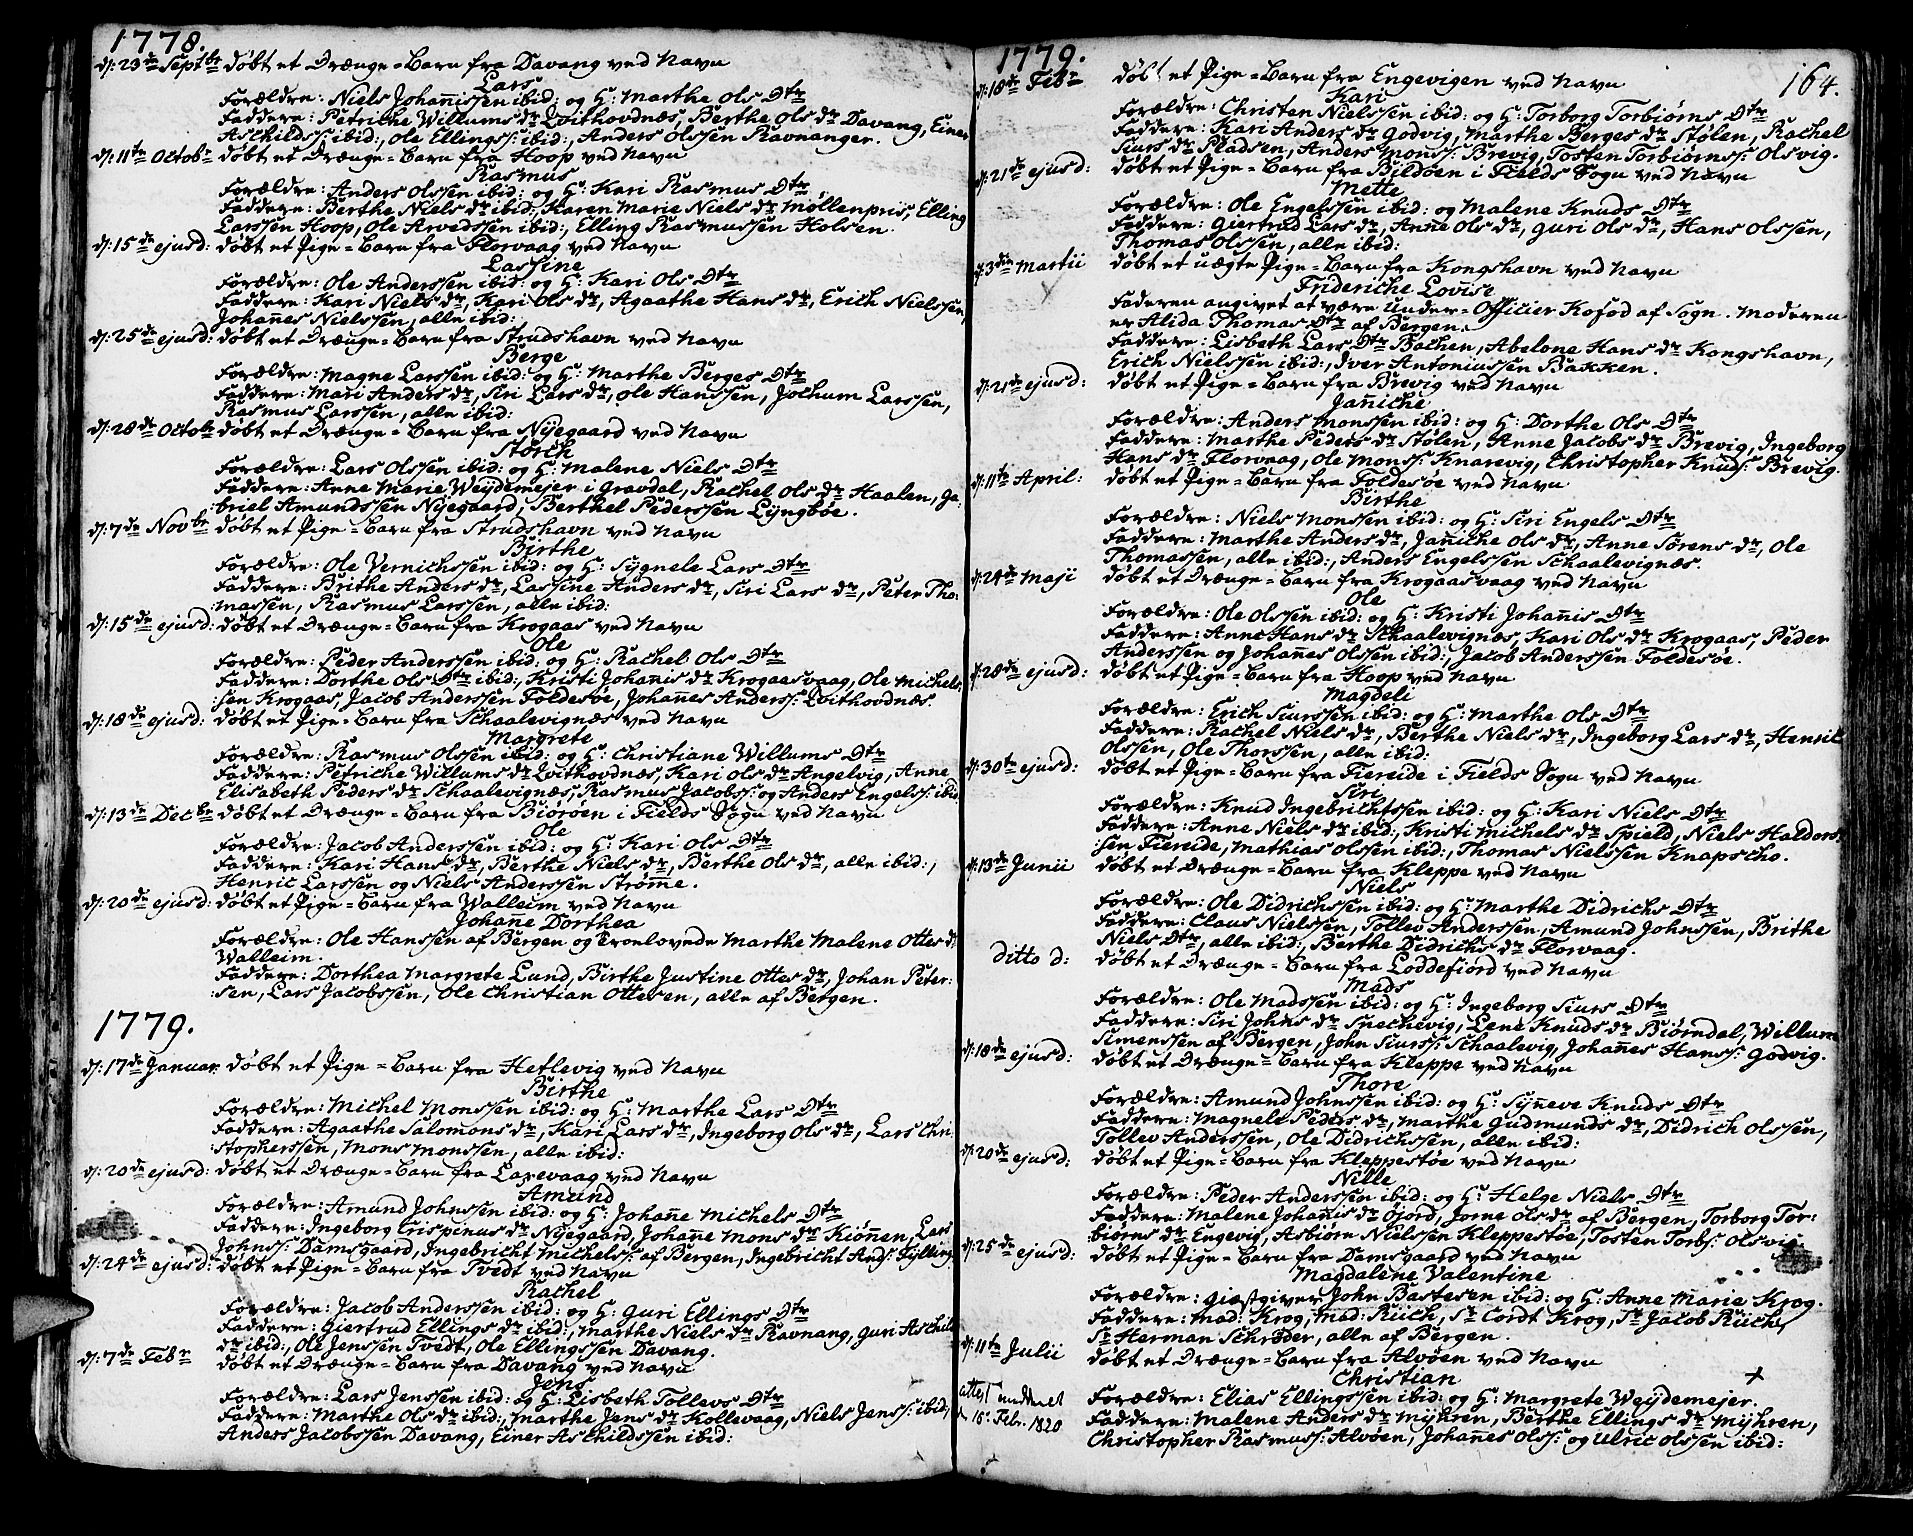 1778.
d: 23de Septbr døbt et Drænge-Barn fra Davang ved Navn
Lars
Forældre: Niels Johannissen ibid: og H: Marthe Ols Dtr
Faddere: Petriche Willums dr Qvithovdnæs, Berthe Ols dr Davang, Einer
Aschildss: ibid:, Ole Ellingss: ibid:, Anders Olssen Ravnanger.
d: 11te Octobr døbt et Drænge-Barn fra Hoop ved Navn
Rasmus
Forældre: Anders Olssen ibid: og H: Kari Rasmus Dtr
Faddere: Berthe Niels dr ibid:, Karen Marie Niels dr Møllenpris, Elling
Larssen Hoop, Ole Arvedssen ibid:, Elling Rasmussen Holsen.
d: 15de ejusd: døbt et Pige-Barn fra Florvaag ved Navn
Lassine
Forældre: Ole Anderssen ibid: og H: Kari Ols Dtr
Faddere: Kari Niels dr, Kari Ols dr, Agaathe Hans dr, Erich Nielssen,
Johannes Nielssen, alle ibid:
d: 25de ejusd: døbt et Drænge-Barn fra Strudshavn ved Navn
Berge
Forældre: Magne Larssen ibid: og H: Marthe Berges Dtr
Faddere: Mari Anders dr, Siri Lars dr, Ole Hanssen, Jochum Larssen,
Rasmus Larssen, alle ibid:
d: 28de Octobr døbt et Drænge-Barn fra Nyegaard ved Navn
Storch
Forældre: Lars Olssen ibid: og H: Malene Niels Dtr
Faddere: Anne Marie Weydemejer i Gravdal, Rachel Ols dr Haalen, Ga-
briel Amundssen Nyegaard, Berthel Pederssen Lyngbøe.
d: 7de Novbr døbt et Pige-Barn fra Strudshavn ved Navn
Birthe
Forældre: Ole Vernichssen ibid: og H: Sygnele Lars Dtr
Faddere: Brithe Anders dr, Lassine Anders dr, Siri Lars dr, Peter Tho-
massen, Rasmus Larssen, alle ibid:
d: 15de ejusd: døbt et Drænge-Barn fra Krogaas ved Navn
Ole
Forældre: Peder Anderssen ibid: og H: Rachel Ols Dtr
Faddere: Dorthe Ols Dtr ibid:, Kristi Johannis dr Krogaasvaag, Ole Michels-
sen Krogaas, Jacob Anderssen Foldesøe, Johannes Anderss: Qvithovdnæs.
d: 18de ejusd: døbt et Pige-Barn fra Schaalevignæs ved Navn
Margrete
Forældre: Rasmus Olssen ibid: og H: Christiane Willums Dtr
Faddere: Petriche Willums dr Qvithovdnæs, Kari Ols dr Angelvig, Anne
Elisabeth Peders dr Schaalevignæs, Rasmus Jacobss: og Anders Engelss: ibid
d: 13de Decbr døbt et Drænge-Barn fra Biørøen i Fields Sogn ved Navn
Ole
Forældre: Jacob Anderssen ibid: og H: Kari Ols Dtr
Faddere: Kari Hans dr, Berthe Niels dr, Berthe Ols dr, alle ibid:,
Henric Larssen og Niels Anderssen Strømme.
d: 20de ejusd: døbt et Pige-Barn fra Walleim ved Navn
Johanne Dorthea
Forældre: Ole Hanssen af Bergen og Troelovede Marthe Malene Ottes dr
Walleim.
Faddere: Dorthea Margrete Lund, Birthe Justine Ottes dr, Johan Peter-
sen, Lars Jacobssen, Ole Christian Ottesen, alle af Bergen.
1779.
d: 17de Januar døbt et Pige-Barn fra Hetlevig ved Navn
Birthe
Forældre: Michel Monssen ibid: og H: Marthe Lars Dtr
Faddere: Agaathe Salomons dr, Kari Lars dr, Ingeborg Ols dr, Lars Chri-
stopherssen, Mons Monssen, alle ibid:
d: 20de ejusd: døbt et Drænge-Barn fra Laxevaag ved Navn
Amund
Forældre: Amund Johnssen ibid: og H: Johanne Michels Dtr
Faddere: Ingeborg Crispinus dr Nyegaard, Johanne Mons dr Kiønnen, Lars
Johnss: Damsgaard, Ingebricht Michelss: af Bergen, Ingebricht Ands: Fylling
d: 24de ejusd: døbt et Pige-Barn fra Tvedt ved Navn
Rachel
Forældre: Jacob Anderssen ibid: og H: Guri Ellings Dtr
Faddere: Giertrud Ellings dr ibid:, Marthe Niels dr Ravnang, Guri Aschils
dr ibid:, Ole Jenssen Tvedt, Ole Ellingssen Davang.
d: 7de Febr døbt et Drænge-Barn fra Davang ved Navn
Jens
Forældre: Lars Jenssen ibid: og H: Lisbeth Tollevs Dtr
Faddere: Marthe Ols dr ibid:, Marthe Jens dr Kollevaag, Niels Jenss: ibid:,
Anders Jacobssen Davang, Einer Aschildssen ibid:
1779.
164.
d: 18de Febr døbt et Pige-Barn fra Engevigen ved Navn
Kari
Forældre: Christen Nielssen ibid: og H: Torborg Torbiørns Dtr
Faddere: Kari Anders dr Godvig, Marthe Berges dr Stølen, Rachel
Siurs dr Pladsen, Anders Monss: Brevig, Tosten Torbiørnss: Olsvig.
d: 21de ejusd: døbt et Pige-Barn fra Bildøen i Fields Sogn ved Navn
Mette
Forældre: Ole Engelssen ibid: og Malene Knuds Dtr
Faddere: Giertrud Lars dr, Anne Ols dr, Guri Ols dr, Hans Olssen,
Thomas Olssen, alle ibid:
d: 3die Martii døbt et uægte Pige-Barn fra Kongshavn ved Navn
Frideriche Lovise
Faderen angivet at være Under-Officier Kofod af Sogn. Moderen
er Alida Thomas Dtr af Bergen.
Faddere: Lisbeth Lars Dtr Bachen, Abelone Hans dr Kongshavn,
Erich Nielssen ibid:, Iver Antoniussen Bakken.
d: 21de ejusd: døbt et Pige-Barn fra Brevig ved Navn
Janniche
Forældre: Anders Monssen ibid: og H: Dorthe Ols Dtr
Faddere: Marthe Peders dr Stølen, Anne Jacobs dr Brevig, Ingeborg
Hans dr Florvaag, Ole Monss: Knarevig, Christopher Knuds: Brevig.
d: 11te April: døbt et Pige-Barn fra Foldesøe ved Navn
Birthe
Forældre: Niels Monssen ibid: og H: Siri Engels Dtr
Faddere: Marthe Anders dr, Janniche Ols dr, Anne Sørens dr, Ole
Thomassen, alle ibid:, Anders Engelssen Schaalevignæs.
d: 24de Maji døbt et Drænge-Barn fra Krogaasvaag ved Navn
Ole
Forældre: Ole Olssen ibid: og H: Kristi Johannis Dtr
Faddere: Anne Hans dr Schaalevignæs, Kari Ols dr Krogaas, Peder
Anderssen og Johannes Olssen ibid:, Jacob Anderssen Foldesøe.
d: 28de ejusd: døbt et Pige-Barn fra Hoop ved Navn
Magdeli
Forældre: Erich Siurssen ibid: og H: Marthe Ols Dtr
Faddere: Rachel Niels dr, Berthe Niels dr, Ingeborg Lars dr, Henric
Olssen, Ole Thorssen, alle ibid:
d: 30te ejusd: døbt et Pige-Barn fra Fiereide i Fields Sogn ved Navn
Siri
Forældre: Knud Ingebrichtssen ibid: og H: Kari Niels Dtr
Faddere: Anne Niels dr ibid:, Kristi Michels dr Spield, Niels Haldors-
sen Fiereide, Mathias Olssen ibid:, Thomas Nielssen Knapscho.
d: 13de Junii døbt et Drænge-Barn fra Kleppe ved Navn
Niels
Forældre: Ole Didrichssen ibid: og H: Marthe Didrichs Dtr
Faddere: Claus Nielssen, Tollev Anderssen, Amund Johnssen, Brithe
Niels Dtr, alle ibid:, Berthe Didrichs dr Florvaag.
ditto d: døbt et Drænge-Barn fra Loddefiord ved Navn
Mads
Forældre: Ole Madssen ibid: og H: Ingeborg Siurs Dtr
Faddere: Siri Johns dr Snechevig, Lene Knuds dr Biørndal, Willum
Simenssen af Bergen, John Siurss: Schaalevig, Johannes Hanss: Godvig.
d: 18de ejusd: døbt et Drænge-Barn fra Kleppe ved Navn
Thore
Forældre: Amund Johnssen ibid: og H: Synneve Knuds Dtr
Faddere: Magnele Peders dr, Marthe Gudmunds dr, Didrich Olssen,
Tollev Anderssen, Ole Didrichssen, alle ibid:
d: 20de ejusd: døbt et Pige-Barn fra Kleppestøe ved Navn
Nille
Forældre: Peder Anderssen ibid: og H: Helge Niels Dtr
Faddere: Malene Johannis dr Diord, Jorne Ols dr af Bergen, Torborg Tor-
biørns dr Engevig, Asbiørn Nielssen Kleppestøe, Tosten Torbs: Olsvig
d: 25de ejusd: døbt et Pige-Barn fra Damsgaard ved Navn
Magdalene Valentine
Forældre: Giæstgiver John Bastesen ibid: og H: Anne Marie Krog.
Faddere: Mad: Krog, Mad: Riich, Sr Cordt Krog, Sr Jacob Riich,
Sr Herman Schrøder, alle af Bergen.
d: 11te Julii døbt et Drænge-Barn fra Alvøen ved Navn
Christian
attest meddeelt
d 16: Febr. 1820
Forældre: Elias Ellingssen ibid: og H: Margrete Weydemejer.
Faddere: Malene Anders dr Myhren, Berthe Ellings dr Myhren,
Christopher Rasmuss: Alvøen, Johannes Olss: og Ulric Olssen ibid: